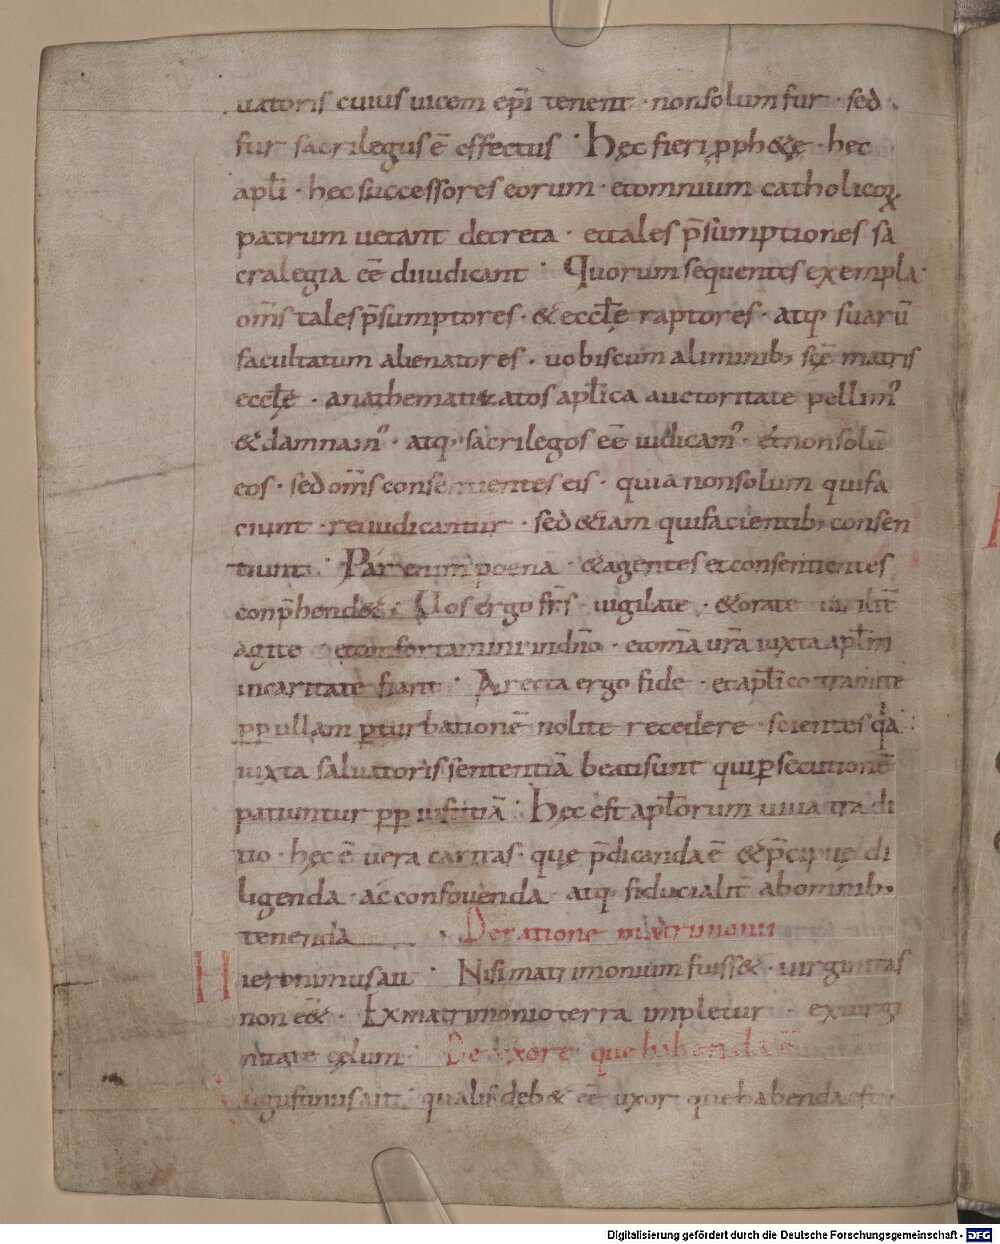 uatoris cuius uicem ep̄i tenent · non solum fur · sed
fur sacrilegus ē effectus · Hęc fieri pph&ę · hec
apl̄i · hec successores eorum · et omnium catholicoꝝ
patrum uetant decreta · et tales p̄sumptiones sa
cralegia eē diiudicant · Quorum sequentes exempla
om̄s tales p̄sumptores · & eccl̄ę raptores · atq; suarū
facultatum alienatores · uobiscum a liminib; scę̄ matris
eccl̄ę · anathematizatos apl̄ica auctoritate pellim᾽
& damnam᾽ · atq; sacrilegos eē iudicam᾽ · et non solū
eos · sed om̄s consentientes eis · quia non solum qui fa
ciunt · rei iudicantur · sed &iam qui facientib; consen
tiunt · Par enim poena · & agentes et consentientes
conp̄hend& · Uos ergo fr̄s · uigilate · & orate uirilit̄
agite et confortamini in dn̄o · et om̄a ur̄a iuxta apl̄m
in caritate fiant · A recta ergo fide · et apl̄ico tramite
pp ullam ꝑturbationē nolite recedere · scientes qa
iuxta saluatoris sententiā beati sunt qui ꝑsecutionē
patiuntur pp iustitiā · Hęc est apl̄orum uiua tradi
tio · hęc ē uera caritas · que p̄dicanda ē & p̄cipuę di
ligenda · ac confouenda · atq; fiducialit̄ ab omnib;
tenenda · De ratione matrimonii
Hieronimus ait · Nisi matrimonium fuiss& · uirginitas
non eē& · Ex matrimonio terra impletur · ex uirgi
nitate cęlum · De uxore que habenda ē
Augustinus ait · qualis deb& eē uxor que habenda est ·
Digitalisierung gefördert durch die Deutsche Forschungsgemeinschaft - DFG